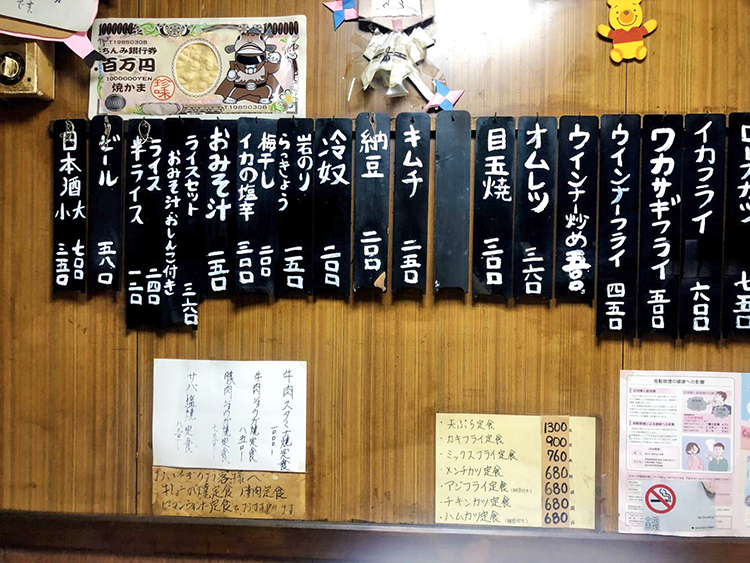 T19850308
ちんみ銀行券
百万円
1000000YEN
焼かま
珍味
T19850308
ロースカツ
イカフライ 六〇〇
ワカサギフライ 五〇〇
ウインナーフライ 四五〇
ウインナー炒め 五〇〇
オムレツ 三六〇
目玉焼 三〇〇
キムチ 二五〇
納豆 二〇〇
冷奴 二〇〇
岩のり
らっきょう 一五〇
梅干し 二〇〇
イカの塩辛 三〇〇
おみそ汁 一五〇
ライスセット
おみそ汁・おしんこ付き 三六〇
ライス 二四〇
半ライス 一二〇
ビール 五八〇
日本酒 大 七〇〇
小 三五〇
牛肉スタミナ焼定食
1000-
牛肉ショウガ焼定食
850-
豚肉ショウガ焼定食
サバ塩焼定食
お客様へ
・天ぷら定食 1300
・カキフライ定食 900
・ミックスフライ定食 760
・メンチカツ定食 680
・アジフライ定食 680
・チキンカツ定食 680
・ハムカツ定食 680
受動喫煙の健康への影響
全面禁煙